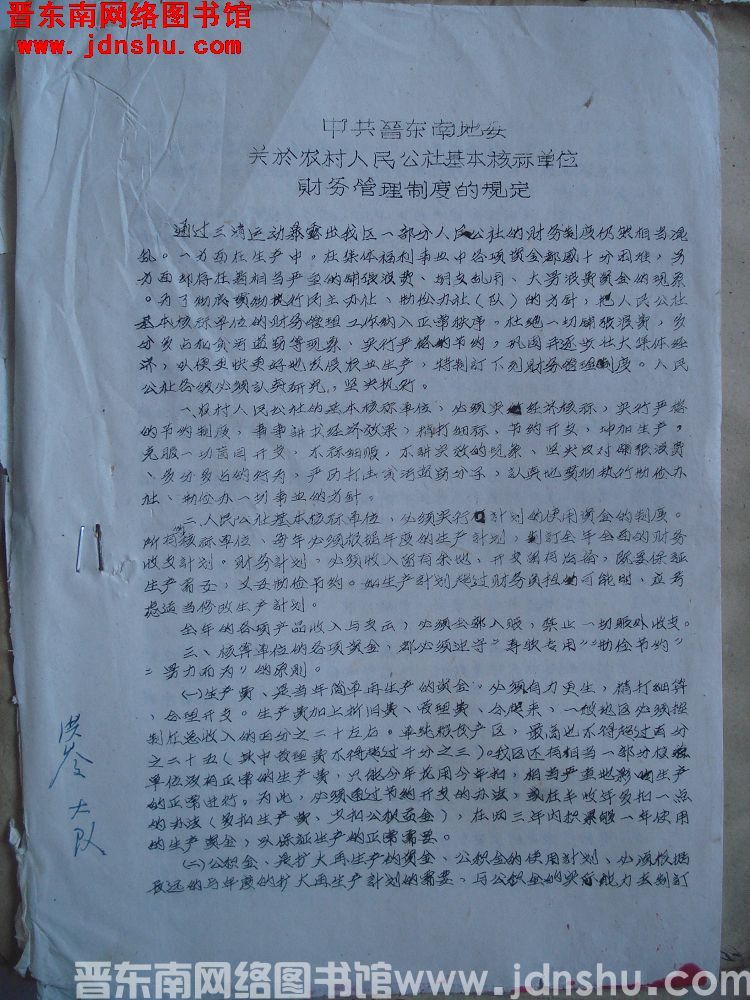 晋东南网络图书馆
www.jdnshu.com
中共晋东南地委
关於农村人民公社基本核祘单位
财务管理制度的规定
通过三清运动暴露出我区一部分人民公社的财务制度仍然相当混
乱。一方面在生产中，在集体福利事业中各项资金都感十分困难，另
方面却存在着相当严重的铺张浪费、胡支乱用、大笔浪费资金的现象
。为了彻底贯彻执行民主办社、勤俭办社（队）的方针，把人民公社
基本核祘单位的财务管理工作纳入正常秩序。杜绝一切铺张浪费，多
分多占贪污盗窃等现象、实行严格的节约，巩固并逐步壮大集体经
济，以便更快更好地发展农业生产，特制訂下列财务管理制度。人民
公社各级必须认真研究，坚决执行。
一、农村人民公社的基本核祘单位，必须实行经济核祘，实行严格
的节约制度，事事讲求经济效果，精打细祘、节约开支，增加生产，
克服一切盲目开支，不祘细账，不讲实效的现象、坚决反对铺张浪费
、多分多占的行为，严厉打击贪污盗窃分子，认真地贯彻执行勤俭办
社、勤俭办一切事业的方针。
二、人民公社基本核祘单位，必须实行計划的使用资金的制度。
所有核祘单位、每年必须根据年度的生产計划，制訂全年全面的财务
收支計划。财务計划，必须收入留有余地、开支留有后备，既要保証
生产需要，又要勤俭节约。如生产計划超过财务负担的可能时，应考
虑适当修改生产計划。
全年的各项产品收入与支出，必须全部入账，禁止一切账外收支。
三、核算单位的各项资金，都必须遵守“专款专用”“勤俭节约”
“量力而为”的原则。
㈠生产费、是当年简单再生产的资金。必须自力更生，精打细算
、合理开支。生产费加上折旧费、管理费、合起来，一般地区必须控
制在总收入的百分之二十左右。单纯粮食产区，最高也不得超过百分
之二十五（其中管理费不得超过千分之三）。我区还有相当一部分核祘
单位没有正常的生产费，只能分年花用今年扣，相当严重地影响生产
的正常进行。为此，必须通过节约开支的办法，或在丰收年多扣一点
的办法（多扣生产费、少扣公积金），在两三年内积累够一年使用
的生产资金，以保証生产的正常需要。
㈡公积金、是扩大再生产的资金、公积金的使用計划、必须根据
长远的与年度的扩大再生产計划的需要、与公积金的实际能力去制訂
大队
晋东南网络图书馆www.jdnshu.com